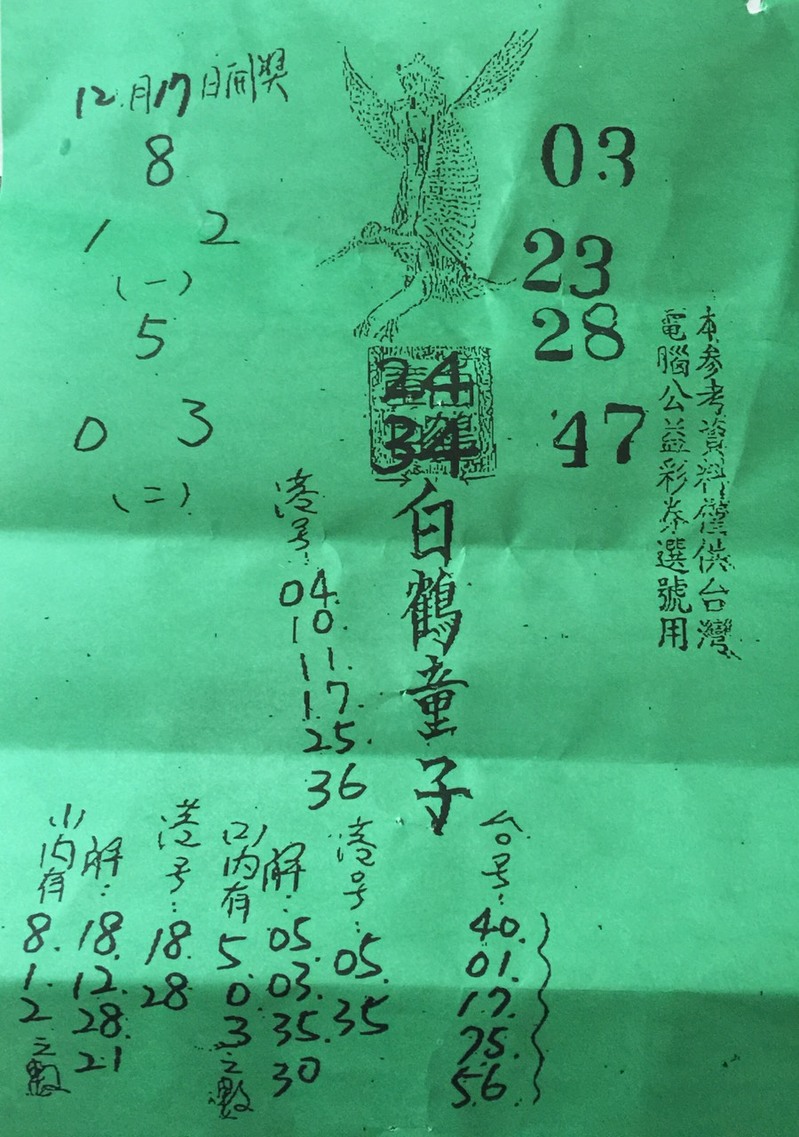 12月17日開獎
8
1 2
(一)
5
0 3
(二)
03
23
28
47
24
34
白鶴童子
本参考資料僅供台灣
電腦公益彩券選號用
港号:
04.
10.
11.
17.
25.
36
(1)內有
8.
1.
2
之數
解:
18.
12.
28
21
港号:
18.
28
(2)內有
5.
0.
3
之數
解:
05.
03.
35.
30
港号:
05.
35
台号:
40.
01.
17.
75.
56.